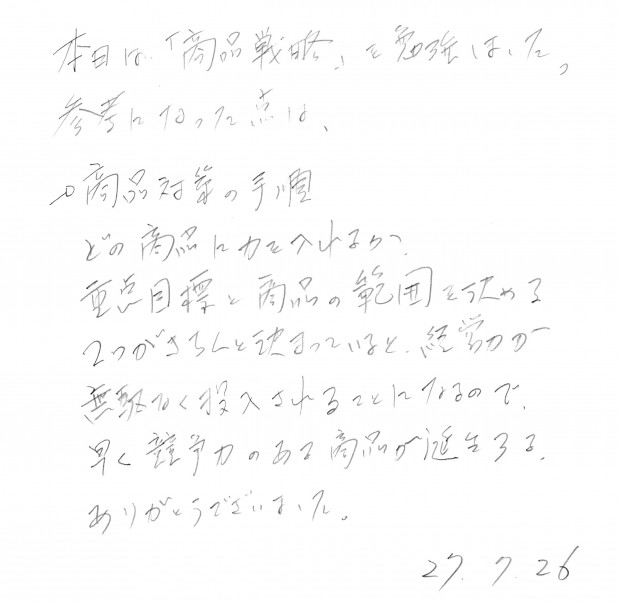 本日は「商品戦略」を勉強しました。
参考になった点は、
○商品対策の手順
どの商品に力を入れるか、
重点目標と商品の範囲を決める
2つがきちんと決まっていると、経営力が
無駄なく投入されることになるので、
早く競争力のある商品が誕生する。
ありがとうございました。
27. 7. 26